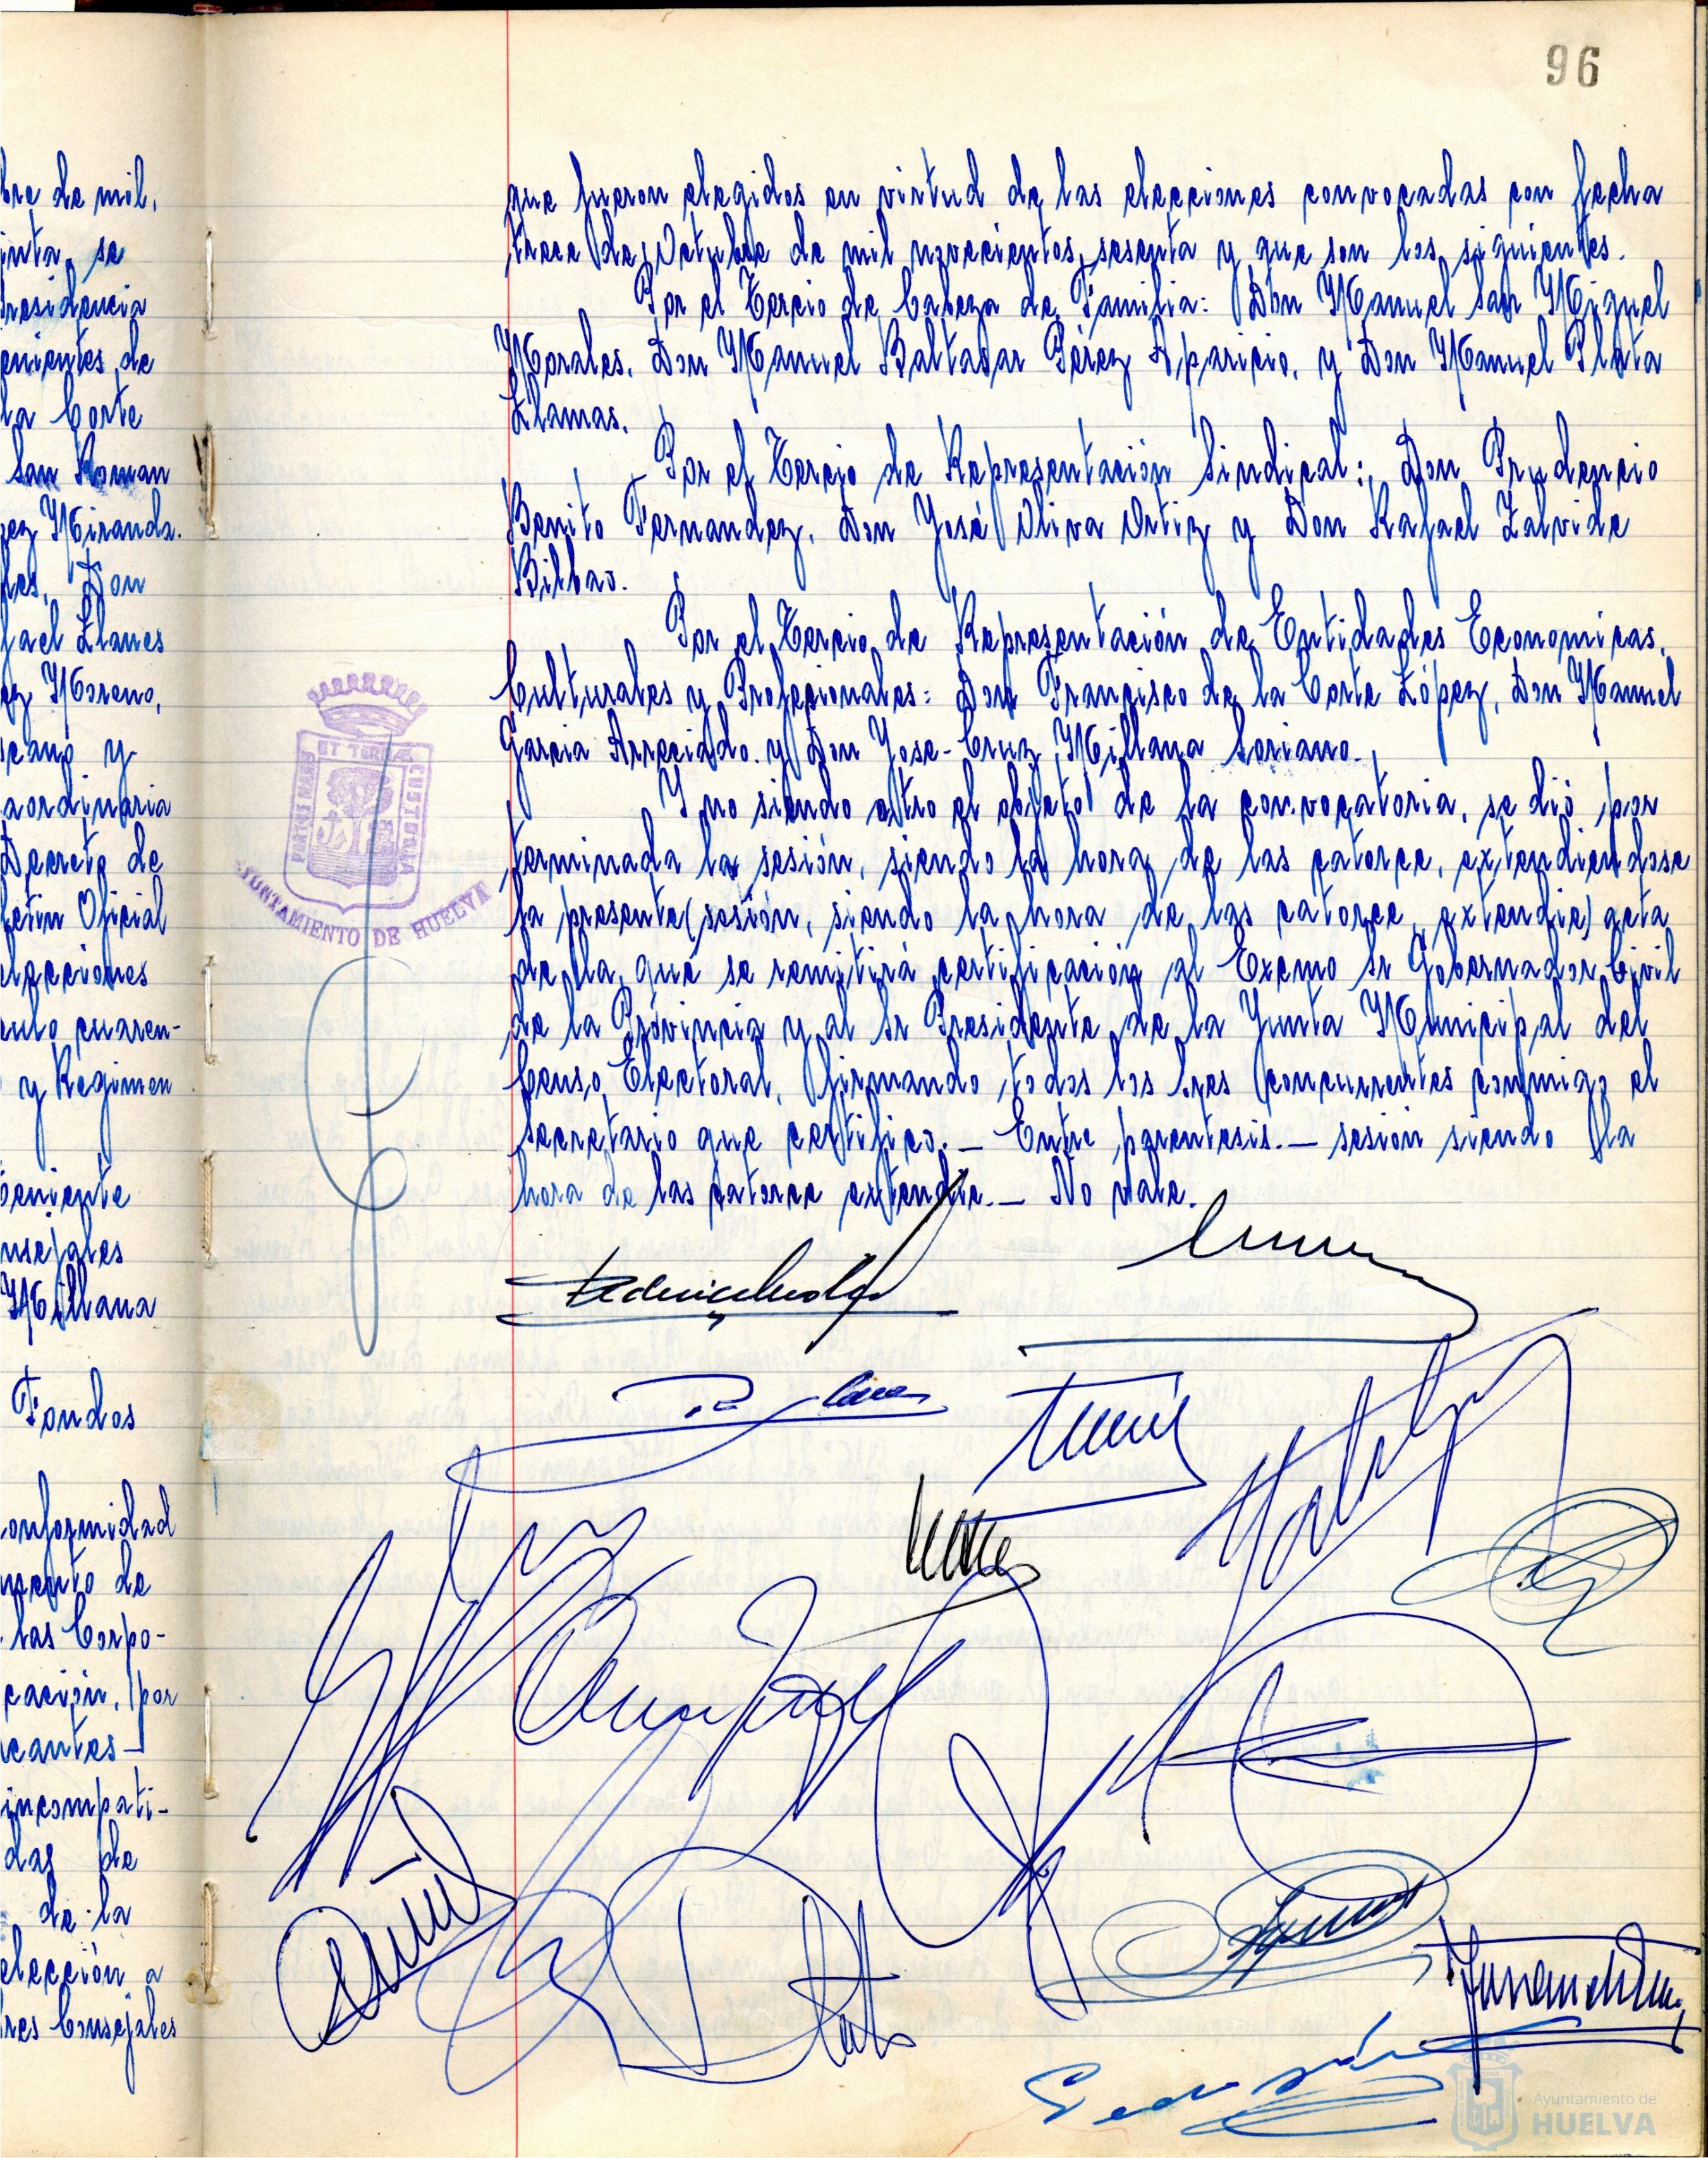 96
bre de mil.
se
residencia
enientes de
la Corte
San Roman
ez Miranda.
les, Don
fael Llanes
ez Moreno,
cano y
aordinaria
Decreto de
letin Oficial
elecciones
culo cuaren-
y Regimen
Teniente
nsejales
Millana
Fondos
onformidad
mento de
las Corpo-
cación, por
cantes-
incompati-
das de
de la
elección a
res Consejales
que fueron elegidos en virtud de las elecciones convocadas con fecha
trece de Octubre de mil novecientos sesenta y que son los siguientes.
Por el Tercio de Cabeza de Familia: Don Manuel San Miguel
Morales, Don Manuel Baltasar Pérez Aparicio, y Don Manuel Plata
Llamas.
Por el Tercio de Representación Sindical: Don Prudencio
Benito Fernandez, Don José Oliva Ortiz y Don Rafael Zalvide
Bilbao.
Por el Tercio de Representación de Entidades Economicas,
Culturales y Profecionales: Don Francisco de la Corte López, Don Manuel
Garcia Arreciado y Don Jose-Cruz Millana Soriano.
Y no siendo otro el objeto de la convocatoria, se dió por
terminada la sesión, siendo la hora de las catorce, extendiendose
la presente (sesión, siendo la hora de las catorce, extendie) acta
de la que se remitirá certificación al Excmo Sr Gobernador Civil
de la Provincia y al Sr Presidente de la Junta Municipal del
Censo Electoral, firmando todos los Sres concurrentes conmigo el
Secretario que certifico.- Entre parentesis.- sesión siendo la
hora de las catorce extendie.- No vale.
PORTUS MARIS ET TERRAE CUSTODIA
AYUNTAMIENTO DE HUELVA
Ayuntamiento de
HUELVA